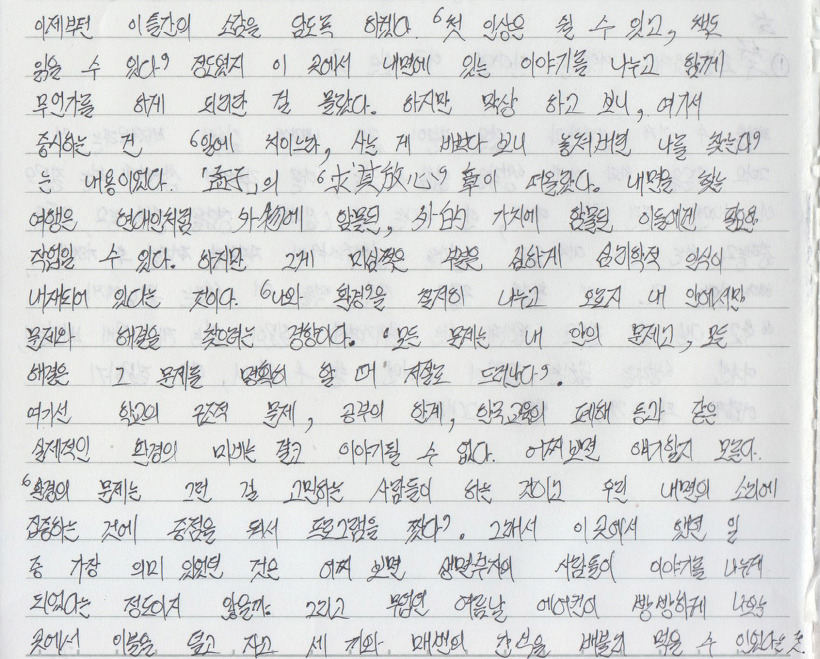 이제부턴 이틀간의 소감을 담도록 하겠다. '첫 인상은 쉴 수 있고, 책도
읽을 수 있다' 정도였지 이 곳에서 내면에 있는 이야기를 나누고 함께
무언가를 하게 되리란 걸 몰랐다. 하지만 막상 하고 보니, 여기서
중시하는 건 '일에 치이느라, 사는 게 바쁘다 보니 놓쳐버린 나를 찾는다'
는 내용이었다. '孟子'의 '求其放心' 章이 떠올랐다. 내면을 찾는
여행은 현대인처럼 外物에 함몰된, 外的 가치에 함몰된 이들에겐 필요한
작업일 수 있다. 하지만 그게 미심쩍은 부분은 심하게 심리학적 인식이
내재되어 있다는 것이다. '나와 환경'을 철저히 나누고 오로지 내 안에서만
문제와 해결을 찾으려는 경향이다. '모든 문제는 내 안의 문제고, 모든
해결은 그 문제를 명확히 할 때 저절로 드러난다'.
여기선 학교의 구조적 문제, 공부의 한계, 한국교육의 폐해 등과 같은
실제적인 환경의 미비는 결코 이야기될 수 없다. 어찌보면 얘기할지 모른다.
'환경의 문제는 그런 걸 고민하는 사람들이 하는 것이고 우린 내면의 소리에
집중하는 것에 중점을 둬서 프로그램을 짰다'. 그래서 이 곳에서 했던 일
중 가장 의미 있었던 것은 어찌 보면 생면부지의 사람들이 이야기를 나누게
되었다는 정도이지 않을까. 그리고 무덥던 여름날 에어컨이 빵빵하게 나오는
곳에서 이불을 덮고 자고 세 끼와 매번의 간식을 배불리 먹을 수 있었다는 것.